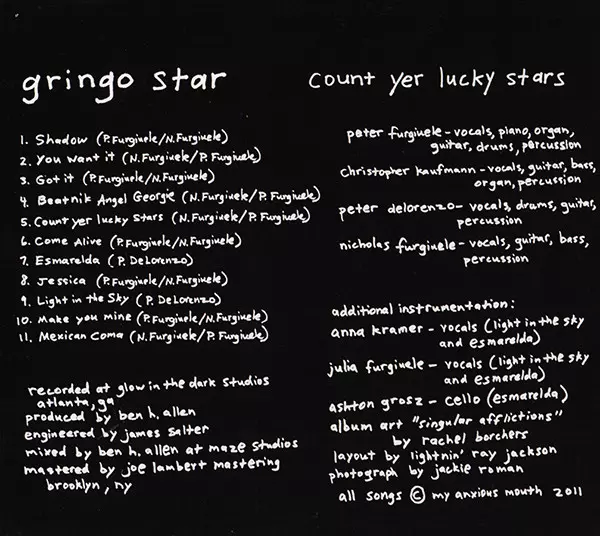 gringo star
1. Shadow (P.Furgiuele/N.Furgiuele)
2. You want it (N.Furgiuele/P. Furgiuele)
3. Got it (P.Furgiuele/N.Furgiuele)
4. Beatnik Angel Georgie (N.Furgiuele/P.Furgiuele)
5. Count yer lucky stars (N.Furgiuele/P.Furgiuele)
6. Come Alive (P.Furgiuele/N.Furgiuele)
7. Esmarelda (P. DeLorenzo)
8. Jessica (P.Furgiuele/N.Furgiuele)
9. Light in the Sky (P. DeLorenzo)
10. Make you mine (P.Furgiuele/N.Furgiuele)
11. Mexican Coma (N.Furgiuele/P.Furgiuele)
recorded at glow in the dark studios
atlanta, ga
produced by ben h. allen
engineered by james salter
mixed by ben h. allen at maze studios
mastered by joe lambert mastering
brooklyn, ny
count yer lucky stars
peter furgiuele - vocals, piano, organ,
guitar, drums, percussion
christopher kaufmann - vocals, guitar, bass,
organ, percussion
peter delorenzo - vocals, drums, guitar,
percussion
nicholas furgiuele - vocals, guitar, bass,
percussion
additional instrumentation:
anna kramer - vocals (light in the sky
and esmarelda)
julia furgiuele - vocals (light in the sky
and esmarelda)
ashton grosz - cello (esmarelda)
album art "singular afflictions"
by rachel borchers
layout by lightnin' ray jackson
photograph by jackie roman
all songs © my anxious mouth 2011